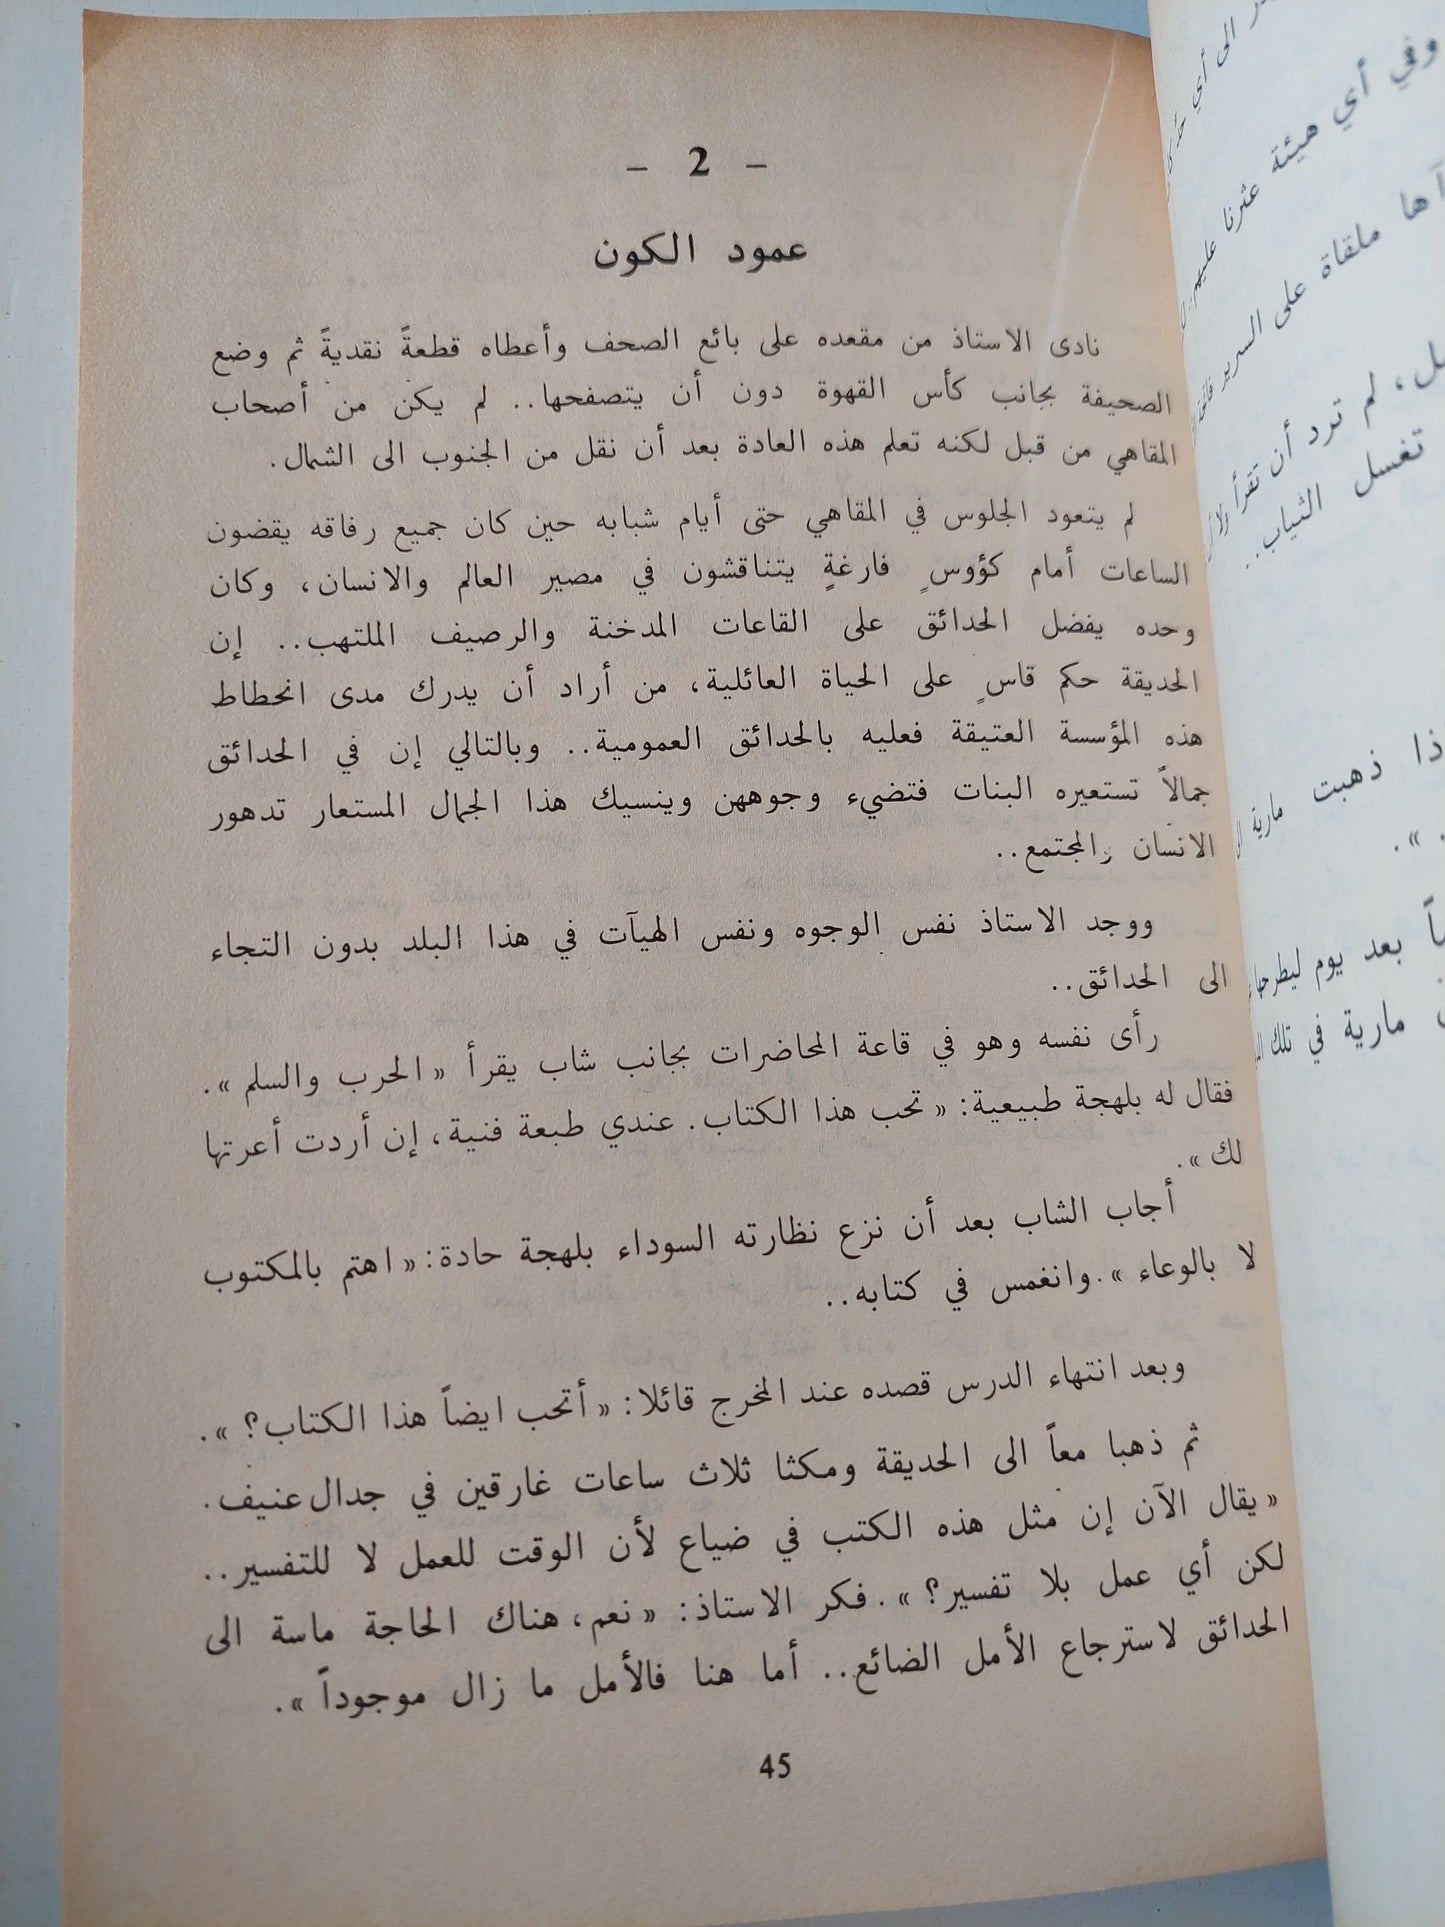 - 2 -
عمود الكون
نادى الاستاذ من مقعده على بائع الصحف وأعطاه قطعةً نقديةً ثم وضع
الصحيفة بجانب كأس القهوة دون أن يتصفحها.. لم يكن من أصحاب
المقاهي من قبل لكنه تعلم هذه العادة بعد أن نقل من الجنوب الى الشمال.
لم يتعود الجلوس في المقاهي حتى أيام شبابه حين كان جميع رفاقه يقضون
الساعات أمام كؤوسٍ فارغةٍ يتناقشون في مصير العالم والانسان، وكان
وحده يفضل الحدائق على القاعات المدخنة والرصيف الملتهب.. إن
الحديقة حكم قاسٍ على الحياة العائلية، من أراد أن يدرك مدى انحطاط
هذه المؤسسة العتيقة فعليه بالحدائق العمومية.. وبالتالي إن في الحدائق
جمالاً تستعيره البنات فتضيء وجوههن وينسيك هذا الجمال المستعار تدهور
الانسان والمجتمع..
ووجد الاستاذ نفس الوجوه ونفس الهيآت في هذا البلد بدون التجاء
الى الحدائق..
رأى نفسه وهو في قاعة المحاضرات بجانب شاب يقرأ « الحرب والسلم ».
فقال له بلهجة طبيعية: « تحب هذا الكتاب. عندي طبعة فنية، إن أردت أعرتها
لك ».
أجاب الشاب بعد أن نزع نظارته السوداء بلهجة حادة: « اهتم بالمكتوب
لا بالوعاء ». وانغمس في كتابه..
وبعد انتهاء الدرس قصده عند المخرج قائلا: « أتحب ايضاً هذا الكتاب؟ ».
ثم ذهبا معاً الى الحديقة ومكثا ثلاث ساعات غارقين في جدال عنيف.
« يقال الآن إن مثل هذه الكتب في ضياع لأن الوقت للعمل لا للتفسير..
لكن أي عمل بلا تفسير؟ ». فكر الاستاذ: « نعم، هناك الحاجة ماسة الى
الحدائق لاسترجاع الأمل الضائع.. أما هنا فالأمل ما زال موجوداً ».
45
الى أي
وفي أي هيئة عثرنا عليهم
ملقاة على السرير
لم ترد أن تقرأ ولا
تغسل الثياب..
ذهبت مارية
بعد يوم ليطرحها
مارية في تلك